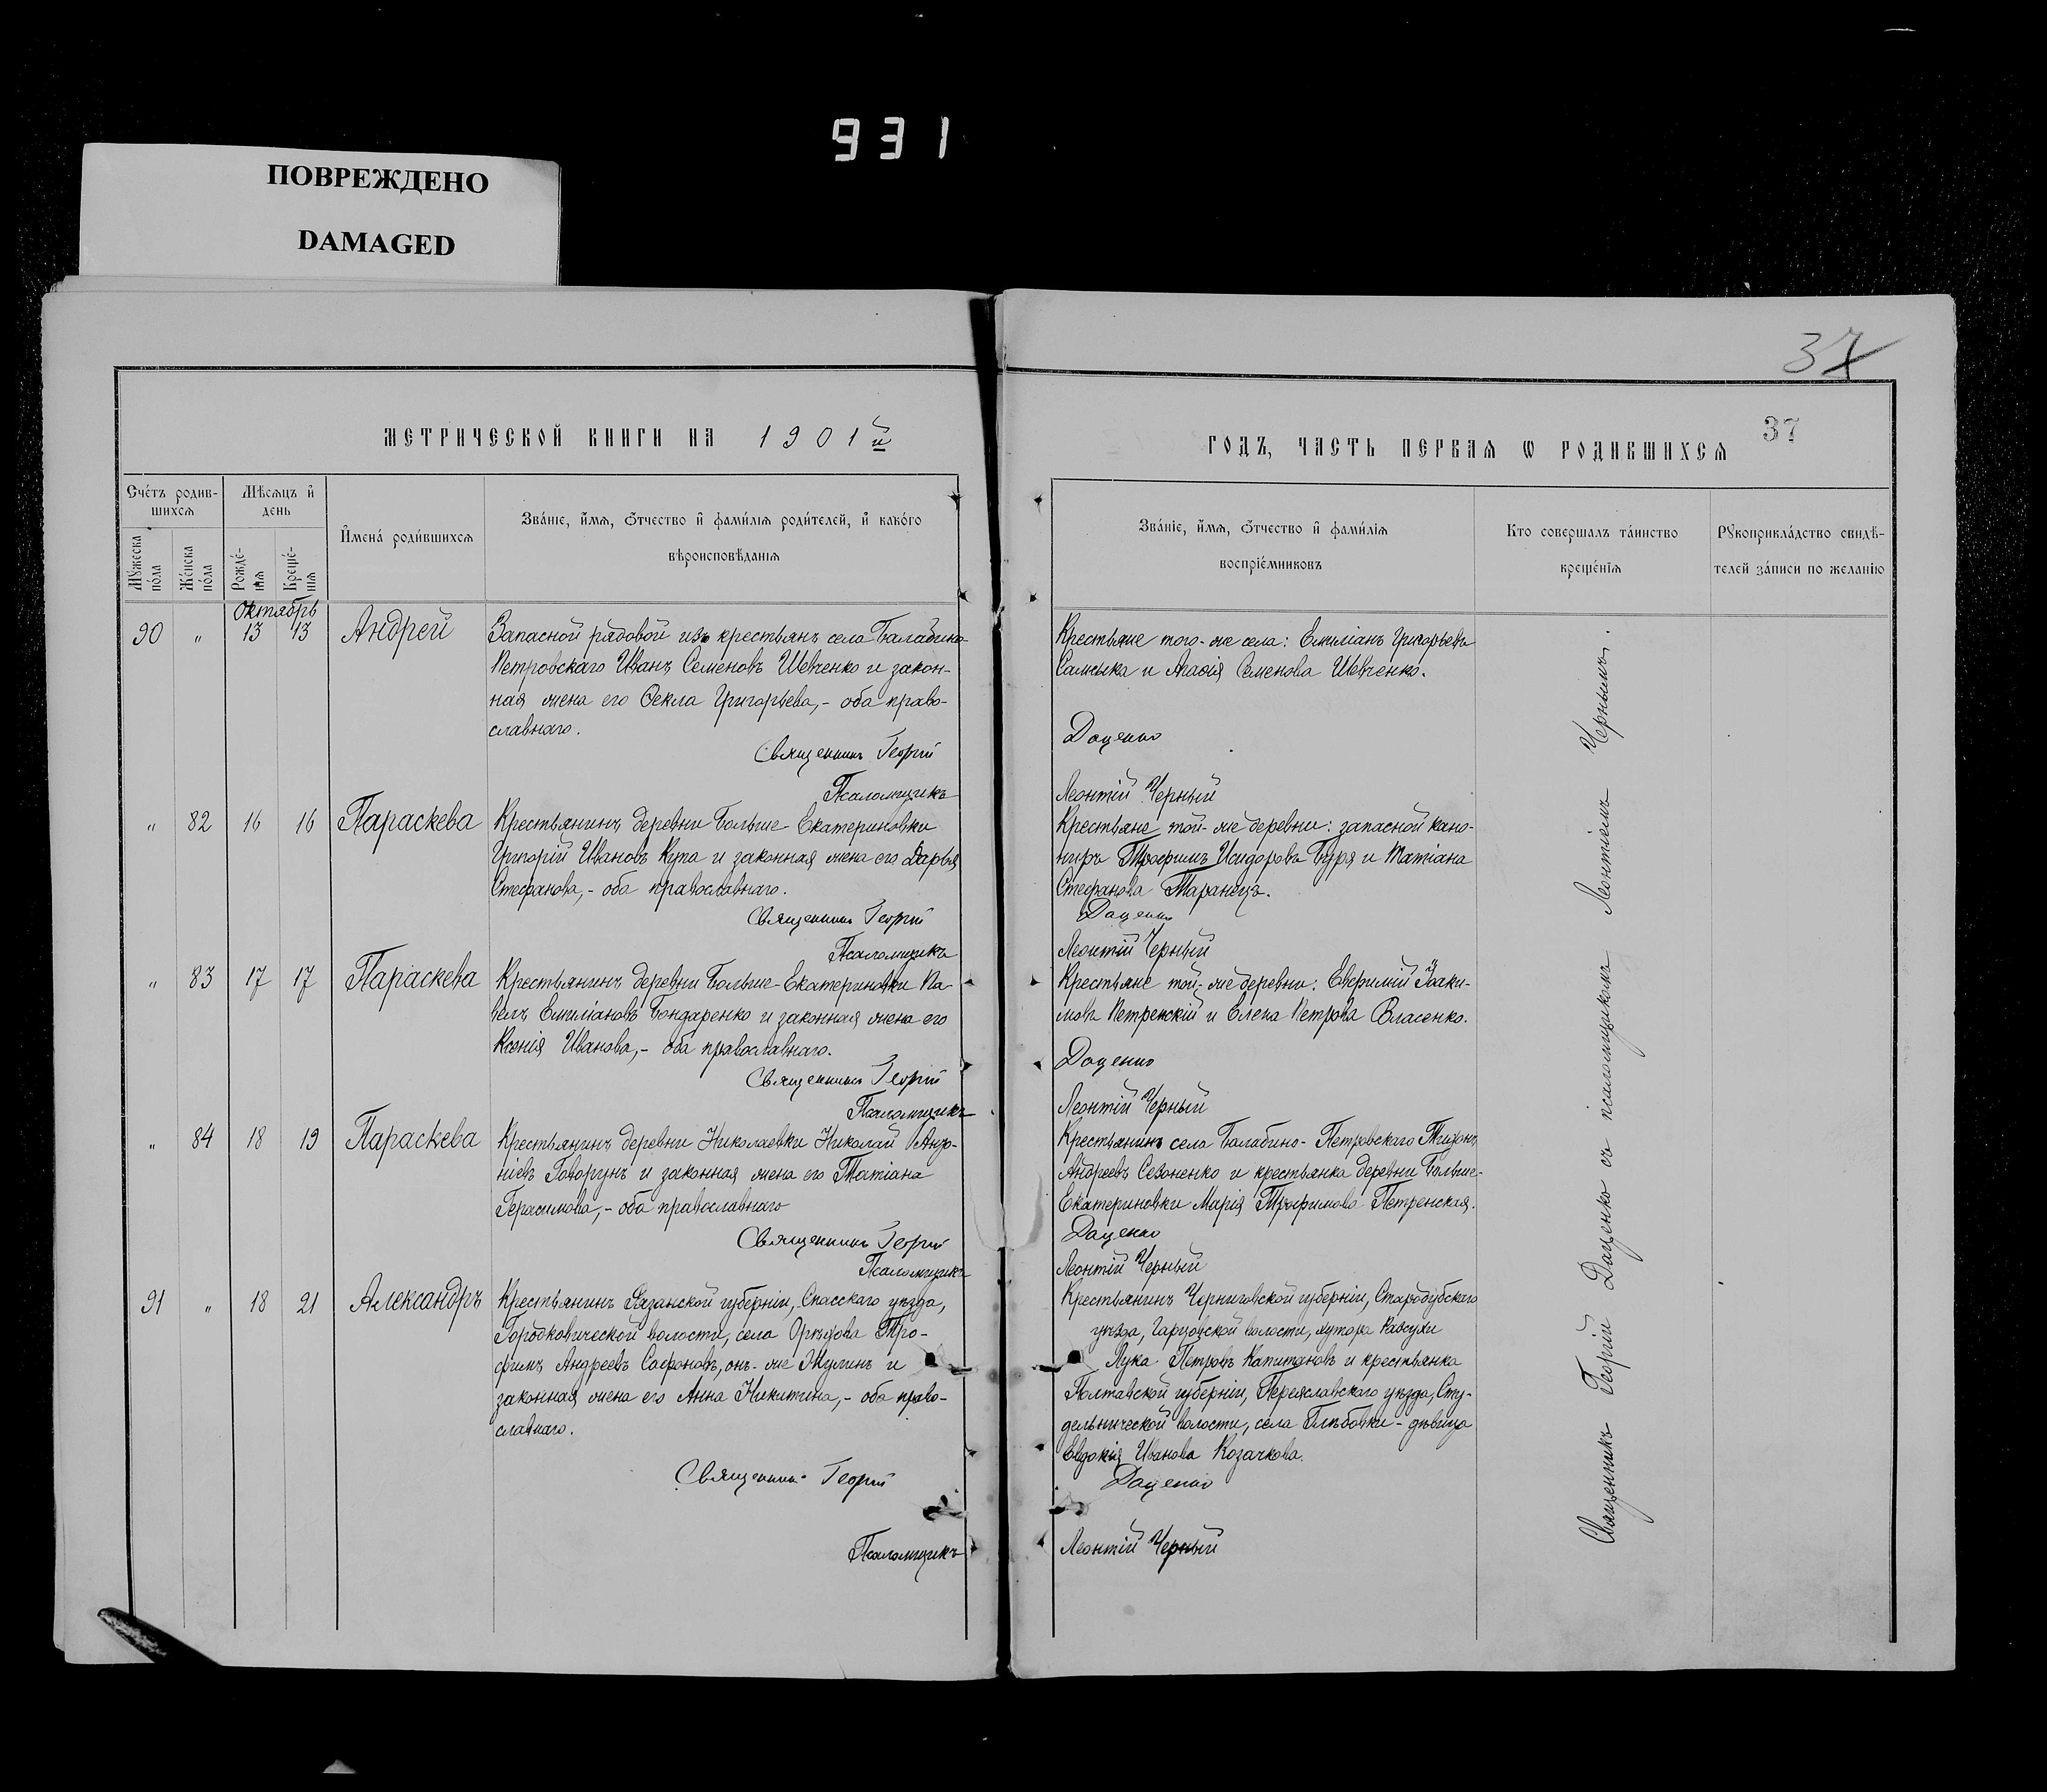 931
ПОВРЕЖДЕНО
DAMAGED
37
МЕТРИЧЕСКОЙ КНИГИ НА 1901й
Счётъ родив-
шихся
Мѣсяцъ и
день
Мужеска
пола
Женска
пола
Рожде-
нія
Креще-
нія
Имена родившихся
Званіе, имя, отчество и фамилія родителей, и какого
вѣроисповѣданія
Октябрь
90 " 13 13 Андрей
Запасной рядовой изъ крестьянъ села Балабино-
Петровскаго Иванъ Семеновъ Шевченко и закон-
ная жена его Ѳекла Григорьева, - оба право-
славнаго.
Священникъ Георгій
Псаломщикъ
" 82 16 16 Параскева
Крестьянинъ деревни Больше-Екатериновки
Григорій Ивановъ Купа и законная жена его Дарья
Стефанова, - оба православнаго.
Священникъ Георгій
Псаломщикъ
" 83 17 17 Параскева
Крестьянинъ деревни Больше-Екатериновки Па-
велъ Емиліановъ Бондаренко и законная жена его
Ксенія Иванова, - оба православнаго.
Священникъ Георгій
Псаломщикъ
" 84 18 19 Параскева
Крестьянинъ деревни Николаевки Николай
Говорунъ и законная жена его Татіана
Герасимова, - оба православнаго
Священникъ Георгій
Псаломщикъ
91 " 18 21 Александръ
Крестьянинъ Рязанской губерніи, Спасскаго уѣзда,
Городковической волости, села Орѣхова Тро-
фимъ Андреевъ Сафоновъ, онъ-же Жулинъ и
законная жена его Анна Никитина, - оба право-
славнаго.
Священникъ Георгій
Псаломщикъ
37
ГОДЪ, ЧАСТЬ ПЕРВАЯ Ѡ РОДИВШИХСЯ
Званіе, имя, отчество и фамилія
воспріемниковъ
Кто совершалъ таинство
крещенія
Рукоприкладство свидѣ-
телей записи по желанію
Крестьяне того-же села: Емиліанъ Григорьевъ
и Агафія Семенова Шевченко.
Даценко
Леонтій Черный
Крестьяне той-же деревни: запасной кано-
ниръ Трофимъ Исидоровъ Буря и Татіана
Стефанова Таранецъ.
Даценко
Леонтій Черный
Крестьяне той-же деревни: Евфимій Іоаки-
мовъ Петренскій и Елена Петрова Власенко.
Даценко
Леонтій Черный
Крестьянинъ села Балабино-Петровскаго Тихонъ
Андреевъ Сезоненко и крестьянка деревни Больше-
Екатериновки Марія Трофимова Петренская.
Даценко
Леонтій Черный
Крестьянинъ Черниговской губерніи, Стародубскаго
уѣзда, волости, хутора
Лука Петровъ Капитановъ и крестьянка
Полтавской губерніи, Переяславскаго уѣзда, Сту-
дельнической волости, села Глѣбовки - дѣвица
Евдокія Иванова Козачкова.
Даценко
Леонтій Черный
Священникъ Георгій Даценко съ псаломщикомъ Леонтіемъ Чернымъ.